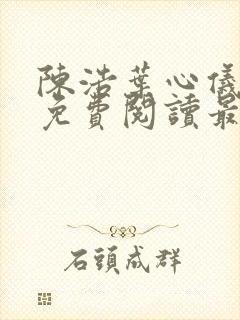 陳浩葉心儀
免費閱讀最
石頭成群